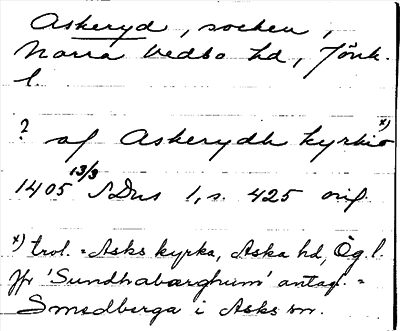 Askeryd, socken,
Norra Vedbo hd, Jönk.
l.
? af Askerydh kyrkio x)
1405 13/3 SDns 1, s. 425 orig.
x) trol. = Asks kyrka, Aska hd, Ög l.
Jfr 'Sundhabærghum' antag. =
Smedberga i Asks sn.